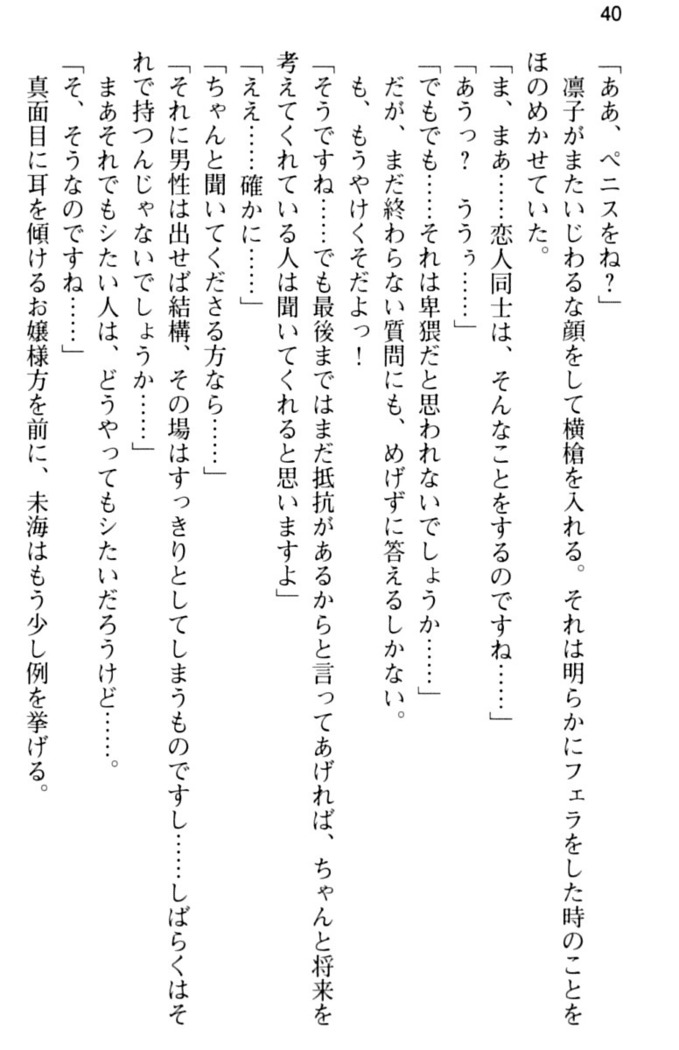 40
「ああ、ペニスをね？」
　凛子がまたいじわるな顔をして横槍を入れる。それは明らかにフェラをした時のことを
ほのめかせていた。
「ま、まぁ……恋人同士は、そんなことをするのですね……」
「あうっ？　ううぅ……」
「でもでも……それは卑猥だと思われないでしょうか……」
　だが、まだ終わらない質問にも、めげずに答えるしかない。
　も、もうやけくそだよっ！
「そうですね……でも最後まではまだ抵抗があるからと言ってあげれば、ちゃんと将来を
考えてくれている人は聞いてくれると思いますよ」
「ええ……確かに……」
「ちゃんと聞いてくださる方なら……」
「それに男性は出せば結構、その場はすっきりとしてしまうものですし……しばらくはそ
れで持つんじゃないでしょうか……」
　まあそれでもシたい人は、どうやってもシたいだろうけど……。
「そ、そうなのですね……」
　真面目に耳を傾けるお嬢様方を前に、未海はもう少し例を挙げる。